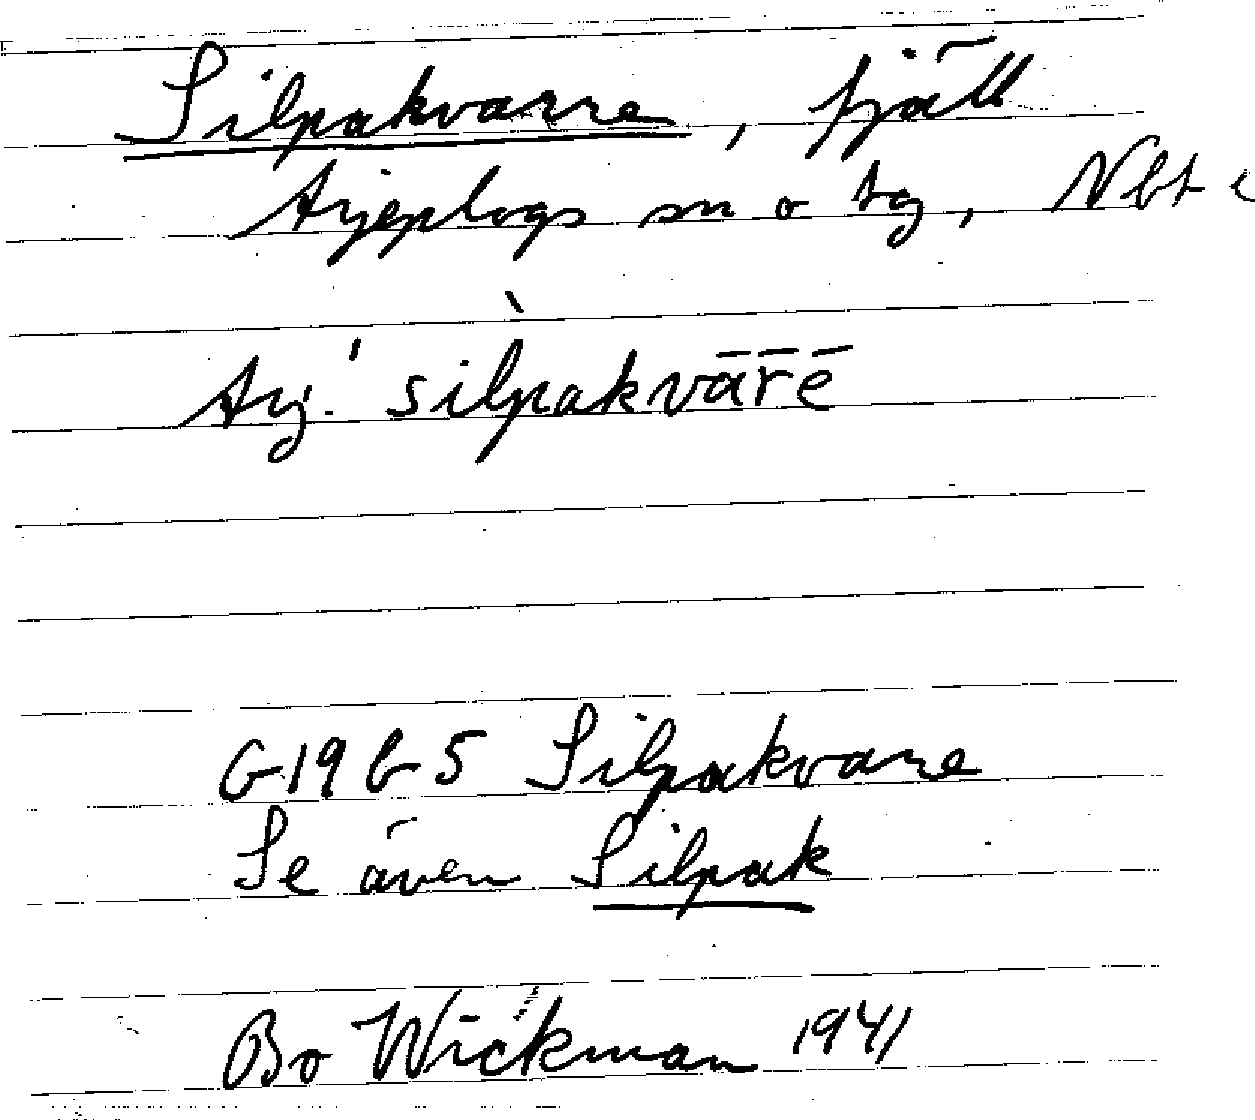 Silpakvarre, fjäll
Arjeplogs sn o tg, Nbt
Arj. silpakvārē
G19 b 5 Silpakvare
Se även Silpak
Bo Wickman 1941